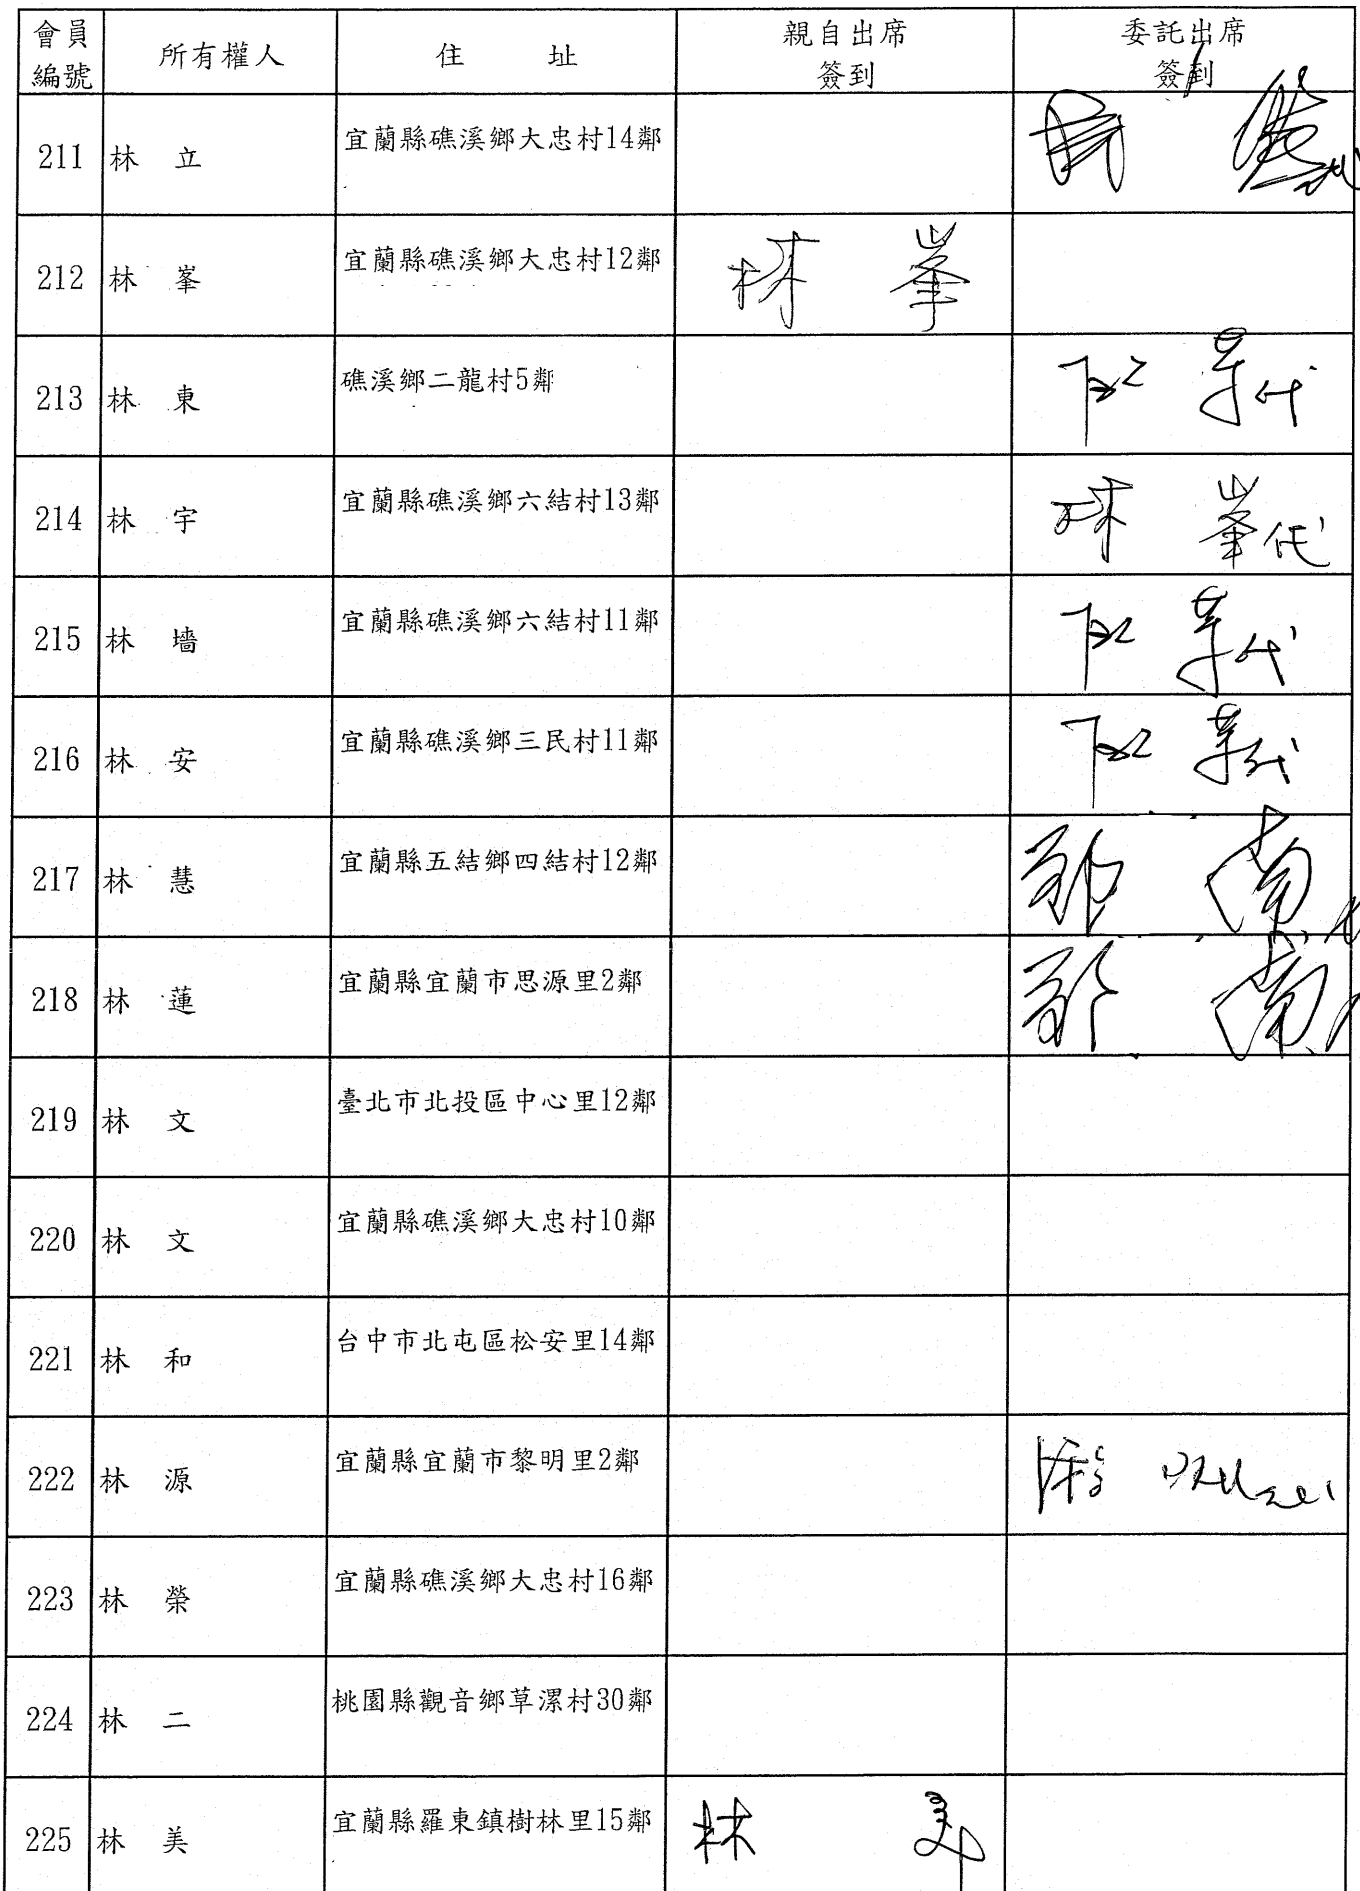 會員編號 所有權人 住 址 親自出席簽到 委託出席簽到
211 林 立 宜蘭縣礁溪鄉大忠村14鄰
212 林 峯 宜蘭縣礁溪鄉大忠村12鄰 林 峯
213 林 東 礁溪鄉二龍村5鄰
214 林 宇 宜蘭縣礁溪鄉六結村13鄰 林 峯代
215 林 墻 宜蘭縣礁溪鄉六結村11鄰
216 林 安 宜蘭縣礁溪鄉三民村11鄰
217 林 慧 宜蘭縣五結鄉四結村12鄰
218 林 蓮 宜蘭縣宜蘭市思源里2鄰
219 林 文 臺北市北投區中心里12鄰
220 林 文 宜蘭縣礁溪鄉大忠村10鄰
221 林 和 台中市北屯區松安里14鄰
222 林 源 宜蘭縣宜蘭市黎明里2鄰
223 林 榮 宜蘭縣礁溪鄉大忠村16鄰
224 林 二 桃園縣觀音鄉草漯村30鄰
225 林 美 宜蘭縣羅東鎮樹林里15鄰 林 美